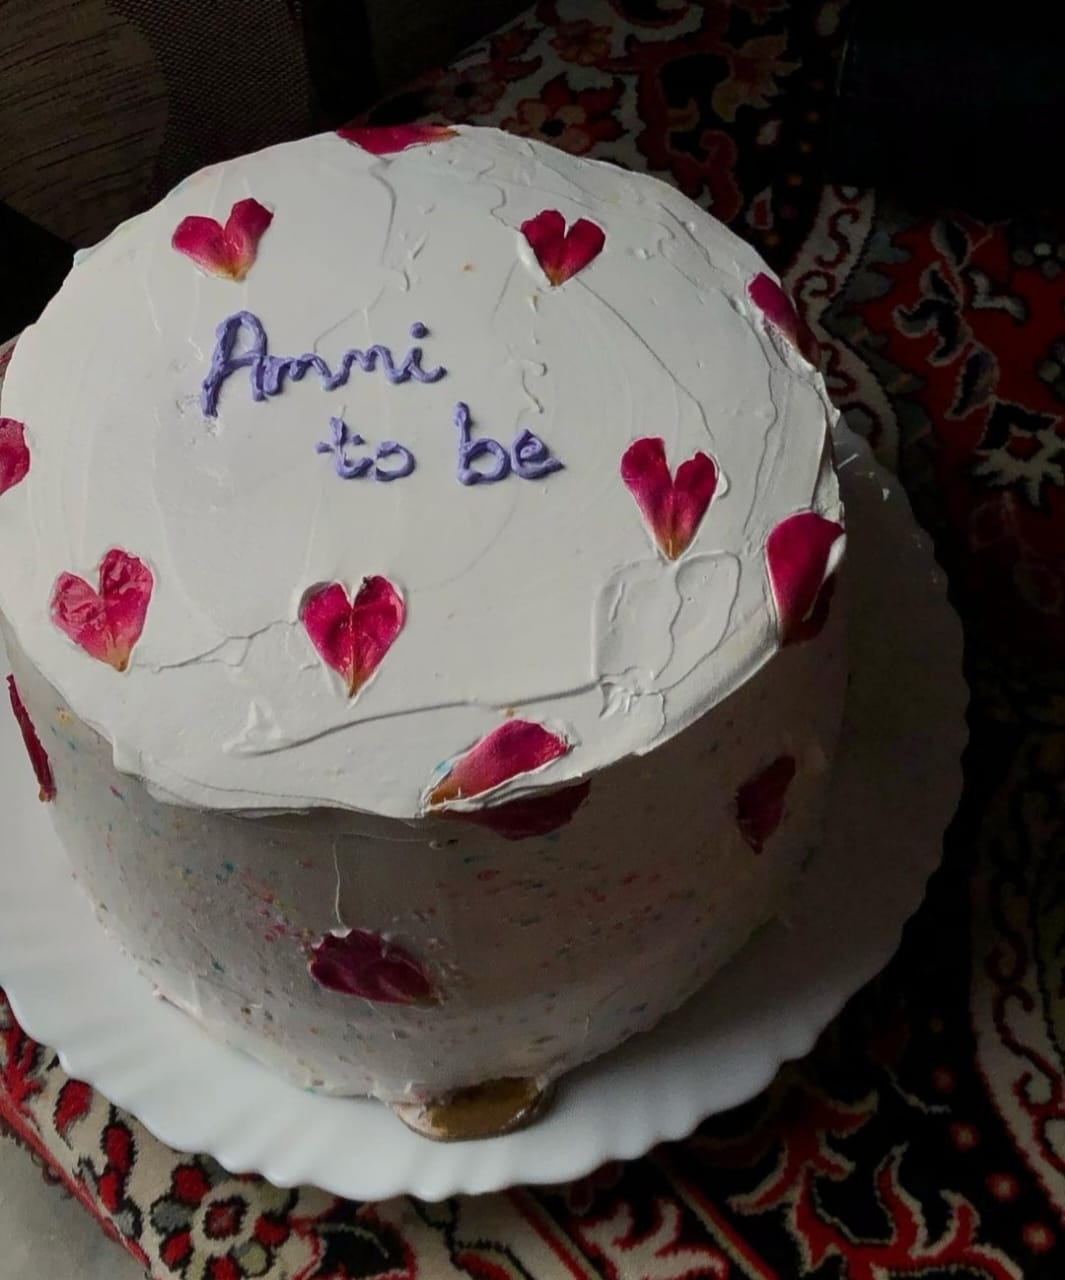 Ammi
to be